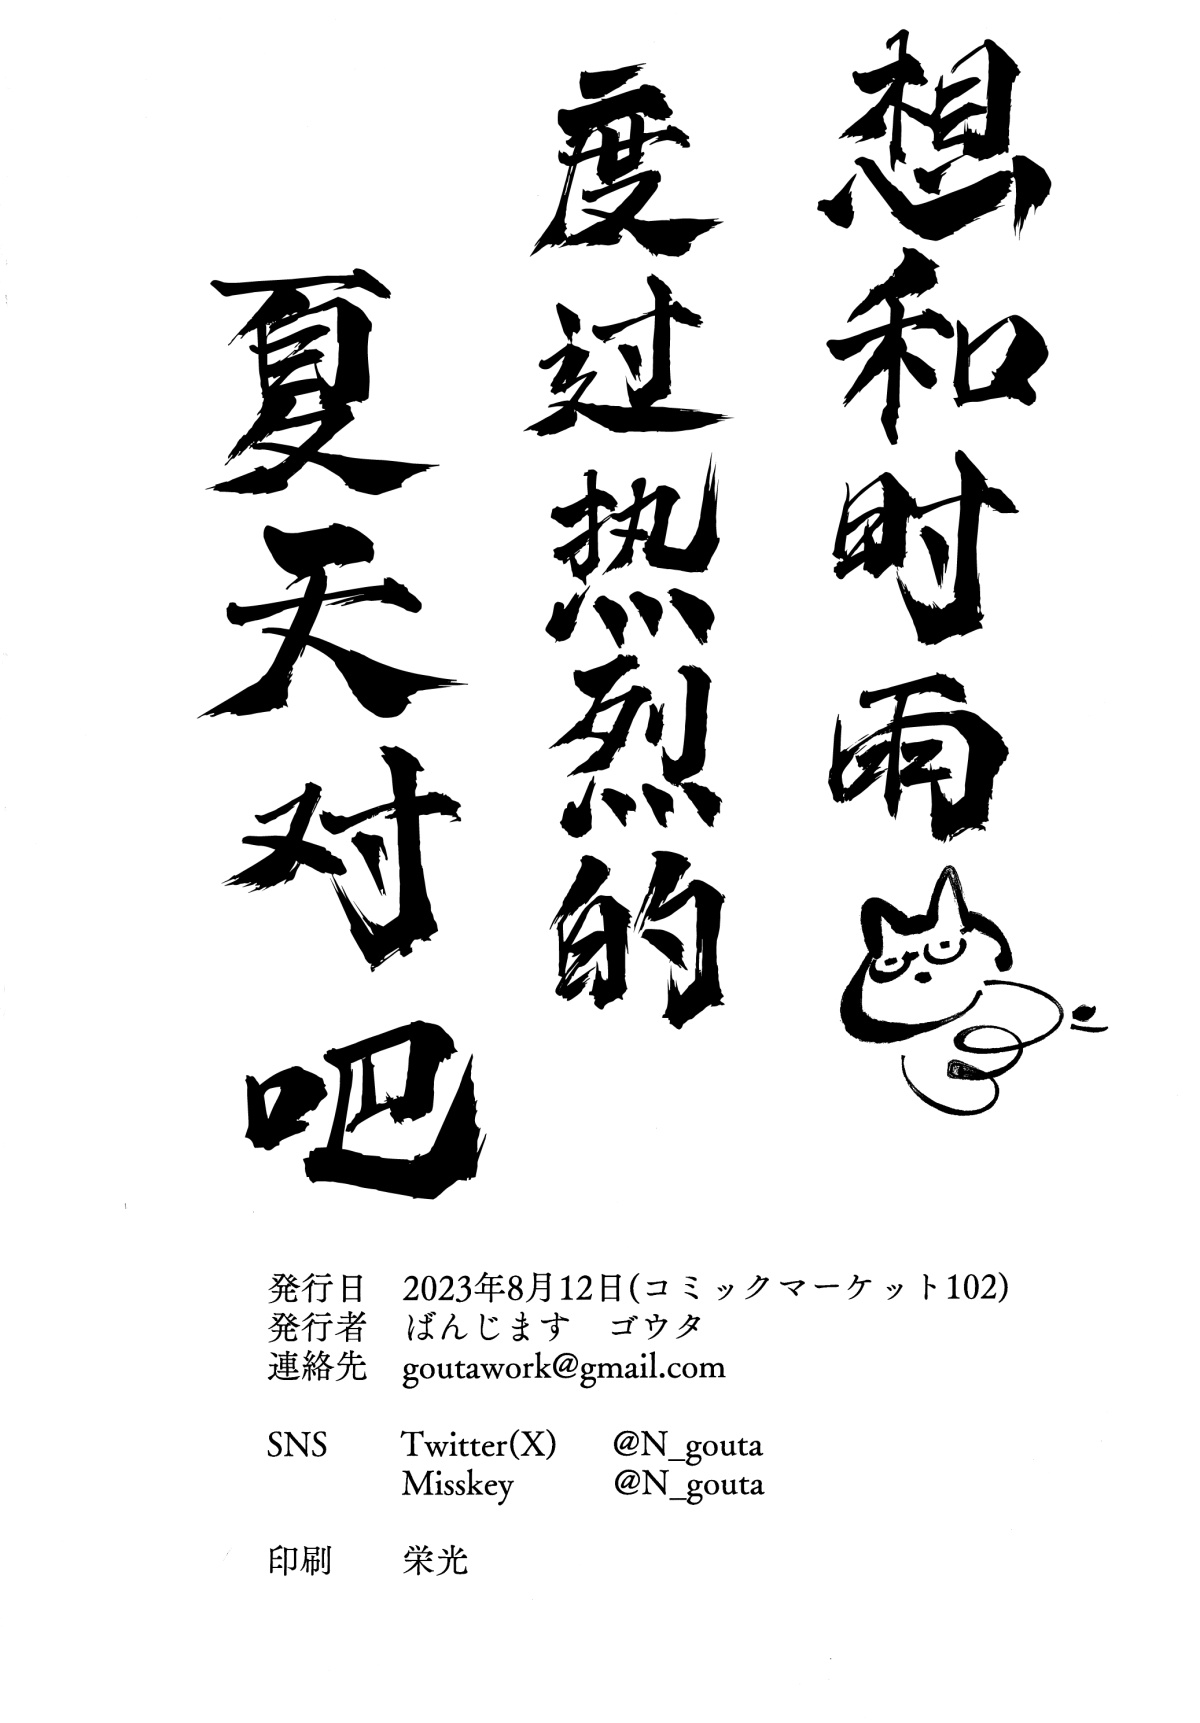 想和时雨
度过热烈的
夏天对吧
発行日 2023年8月12日(コミックマーケット102)
発行者 ばんじます ゴウタ
連絡先 goutawork@gmail.com
SNS Twitter(X) @N_gouta
Misskey @N_gouta
印刷 栄光